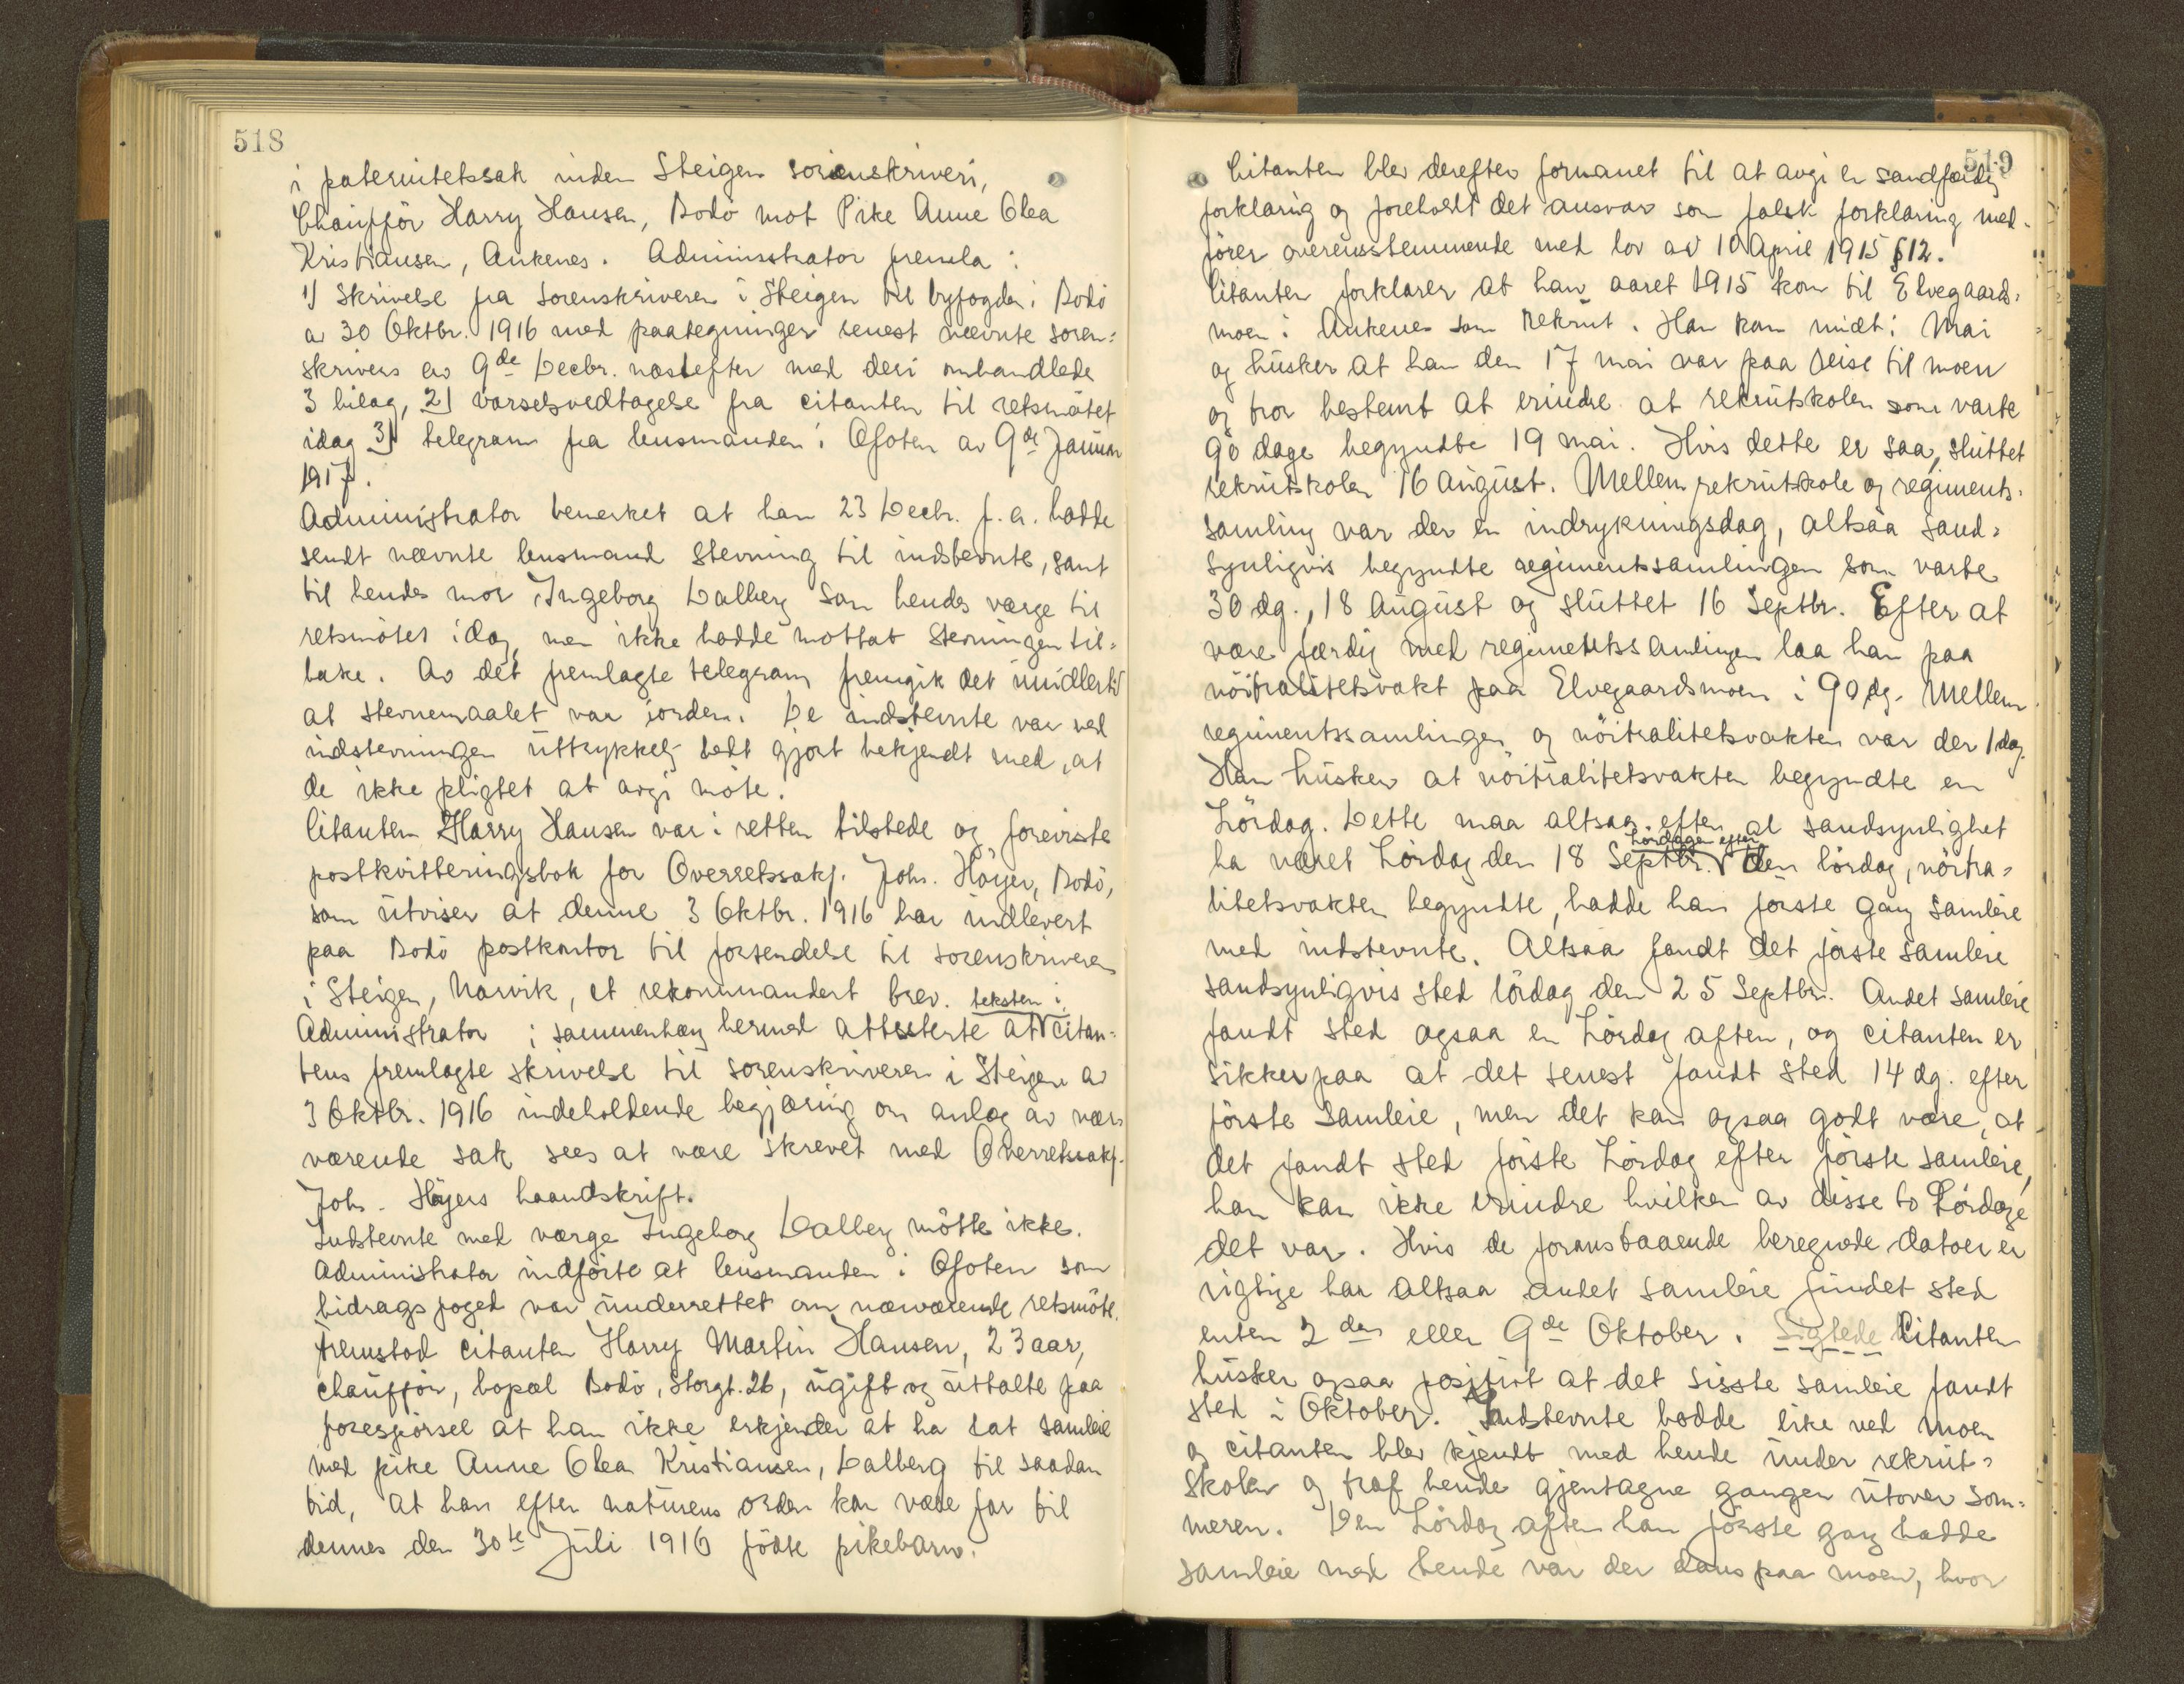 518
i paternitetssak inden Steigen sorenskriveri,
Chaufför Harry Hansen, Bodö mot Pike Anne Olea
Kristiansen, Ankenes. Administrator fremla:
1) Skrivelse fra sorenskriveren i Steigen til byfogden i Bodö
av 30 Oktbr. 1916 med paategninger senest nævnte soren=
skrivers av 9de Decbr. næstefter med deri omhandlede
3 bilag, 2) varselsvedtagelse fra citanten til retsmötet
idag 3) telegram fra lensmanden i Ofoten av 9de Januar
1917.
Administrator bemerket at han 23 Decbr. f.a. hadde
sendt nævnte lensmand stevning til indstevnte, samt
til hendes mor Ingeborg Dalberg som hendes værge til
retsmötet idag, men ikke hadde mottat stevningen til=
bake. Av det fremlagte telegram fremgik det imidlertid
at stevnemaalet var iorden. De indstevnte var ved
indstevningen uttrykkelig sedt gjort bekjendt med, at
de ikke pligtet at avgi möte.
Citanten Harry Hansen var i retten tilstede og foreviste
postkvitteringsbok for Overretssakf. Johs. Höyer, Bodö,
som utviser at denne 3 Oktbr. 1916 har indlevert
paa Bodö postkontor til forsendelse til sorenskriveren
i Steigen, Narvik, et rekommandert brev.
teksten i
Administrator i sammenhæng hermed attesterte at citan=
tens fremlagte skrivelse til sorenskriveren i Steigen av
3 Oktbr. 1916 indeholdende begjæring om anlæg av nær=
værende sak sees at være skrevet med Overretssakf.
Johs. Höyers haandskrift.
Indstevnte med værge Ingeborg Dalberg mötte ikke.
Administrator indförte at lensmanden i Ofoten som
bidragsfoged var underrettet om nærværende retsmöte.
Fremstod citanten Harry Martin Hansen, 23 aar,
chaufför, bopæl Bodö, Storgt. 26, ugift og uttalte paa
forespörsel at han ikke erkjender at ha hat samleie
med pike Anne Olea Kristiansen, Dalberg til saadan
tid, at han efter naturens orden kan være far til
dennes den 30te Juli 1916 födte pikebarn.
519
Citanten blev derefter formanet til at avgi en sandfærdig
forklaring og foreholdt det ansvar som falsk forklaring med=
förer overensstemmende med lov av 10 April 1915 §12.
Citanten forklarer at han aaret 1915 kom til Elvegaards=
moen i Ankenes som rekrut. Han kom midt i Mai
og husker at han den 17 mai var paa reise til moen
og tror bestemt at erindre at rekrutskolen som varte
90 dage begyndte 19 mai. Hvis dette er saa, sluttet
rekrutskolen 16 august. Mellem rekrutskole og regiments=
samling var der en indrykningsdag, altsaa sand=
synligvis begyndte regimentssamlingen som varte
30 dg., 18 August og sluttet 16 Septbr. Efter at
være færdig med regimentssamlingen laa han paa
nöitralitetsvakt paa Elvegaardsmoen i 90 dg. Mellem
regimentssamlingen og nöitralitetsvakten var der 1 dag.
Han husker at nöitralitetsvakten begyndte en
Lördag. Dette maa altsaa efter al sandsynlighet
Lördagen efter
ha været Lördag den 18 Septbr. den lördag, nöitra=
litetsvakten begyndte, hadde han förste gang samleie
med indstevnte. Altsaa fandt det förste samleie
sandsynligvis sted lördag den 25 Septbr. Andet samleie
fandt sted ogsaa en Lördag aften, og citanten er
sikker paa at det senest fandt sted 14 dg. efter
förste samleie, men det kan ogsaa godt være, at
det fandt sted förste Lördag efter förste samleie,
han kan ikke erindre hvilken av disse to Lördage
det var. Hvis de foranstaaende beregnede datoer er
rigtige har altsaa andet samleie fundet sted
enten 2den eller 9de Oktober. Sigtede Citanten
husker ogsaa positivt at det sisste samleie fandt
sted i Oktober. Indstevnte bodde like ved moen
og citanten blev kjendt med hende under rekrut=
skolen og traf hende gjentagne ganger utover som=
meren. Den Lördag aften han förste gang hadde
samleie med hende var der dans paa moen, hvor